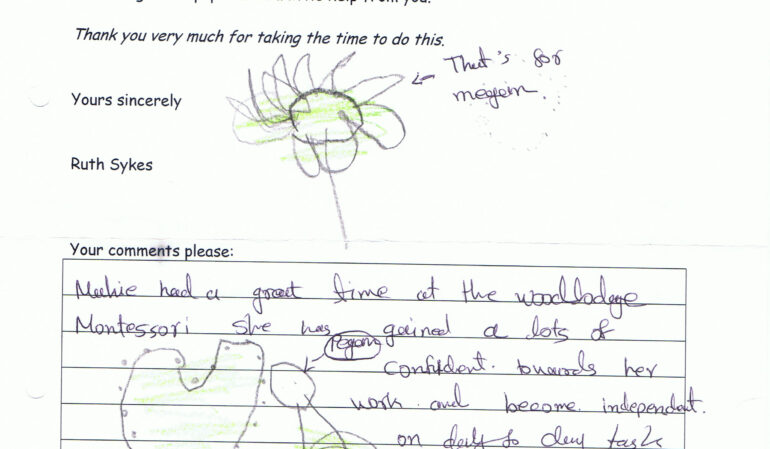 Thank you very much for taking the time to do this.
That's for
megan.
Yours sincerely
Ruth Sykes
Your comments please:
had a great time at the woodlodge
Montessori she has gained a lots of
confident. towards her
work and become independent.
on day to day task